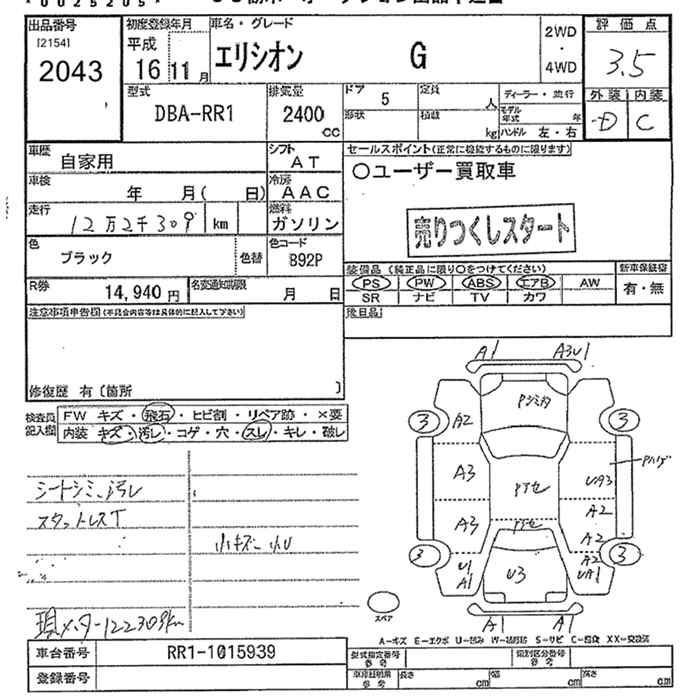 出品番号
[2154]
2043
初度登録年月
平成
16 11 月
車名・グレード
エリシオン G
2WD
・
4WD
評価点
3.5
外装 内装
D C
型式
DBA-RR1
排気量
2400
CC
ドア 5
形状
定員 人
積載 kg
ディーラー・並行
モデル年式 年
ハンドル 左・右
車歴
自家用
シフト
AT
車検
年 月( 日)
冷房
AAC
走行
12万2千309 km
燃料
ガソリン
色
ブラック
色替
色コード
B92P
R券
14,940 円
名変通知期限
月 日
セールスポイント(正常に機能するものに限ります)
○ユーザー買取車
売りつくしスタート
装備品 (純正品に限り○をつけてください)
新車保証書
PS PW ABS エアB AW
SR ナビ TV カワ
有・無
後日品
注意事項申告欄(不具合内容等は具体的に記入して下さい)
修復歴 有〔箇所 〕
検査員記入欄
FW キズ・飛石・ヒビ割・リペア跡・×要
内装 キズ・汚レ・コゲ・穴・スレ・キレ・破レ
シートシミ、汚レ
スタットレスT
小キズ 小U
現メーター122309km
A1 A3U1
Pシミ有
3 A2 3
A3 Pハゲ
UA3
Pアセ
A2
A3 Pアセ A2
3 U1 A1 U3 A2 UA1 3
スペア
A1 A1
A-キズ E-エクボ U-凹み W-補修跡 S-サビ C-腐食 XX-交換済
車台番号 RR1-1015939
登録番号
型式指定番号
参考
類別区分番号
参考
車庫証明用
参考
長さ cm 幅 cm 高さ cm